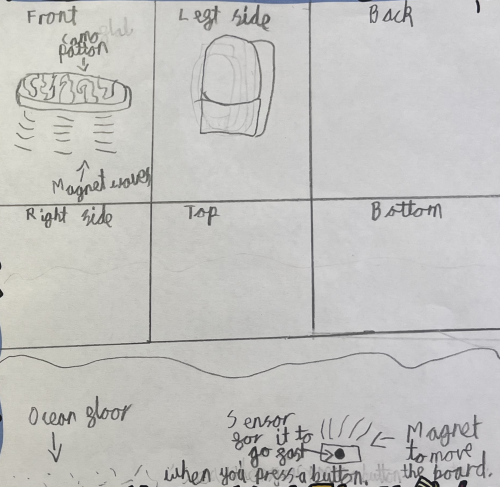 Front
Camo
patton
Magnet waves
Legt side
Back
Right side
Top
Bottom
Ocean gloor
Sensor
gor it to
go gast
when you press a button.
Magnet
to move
the board.